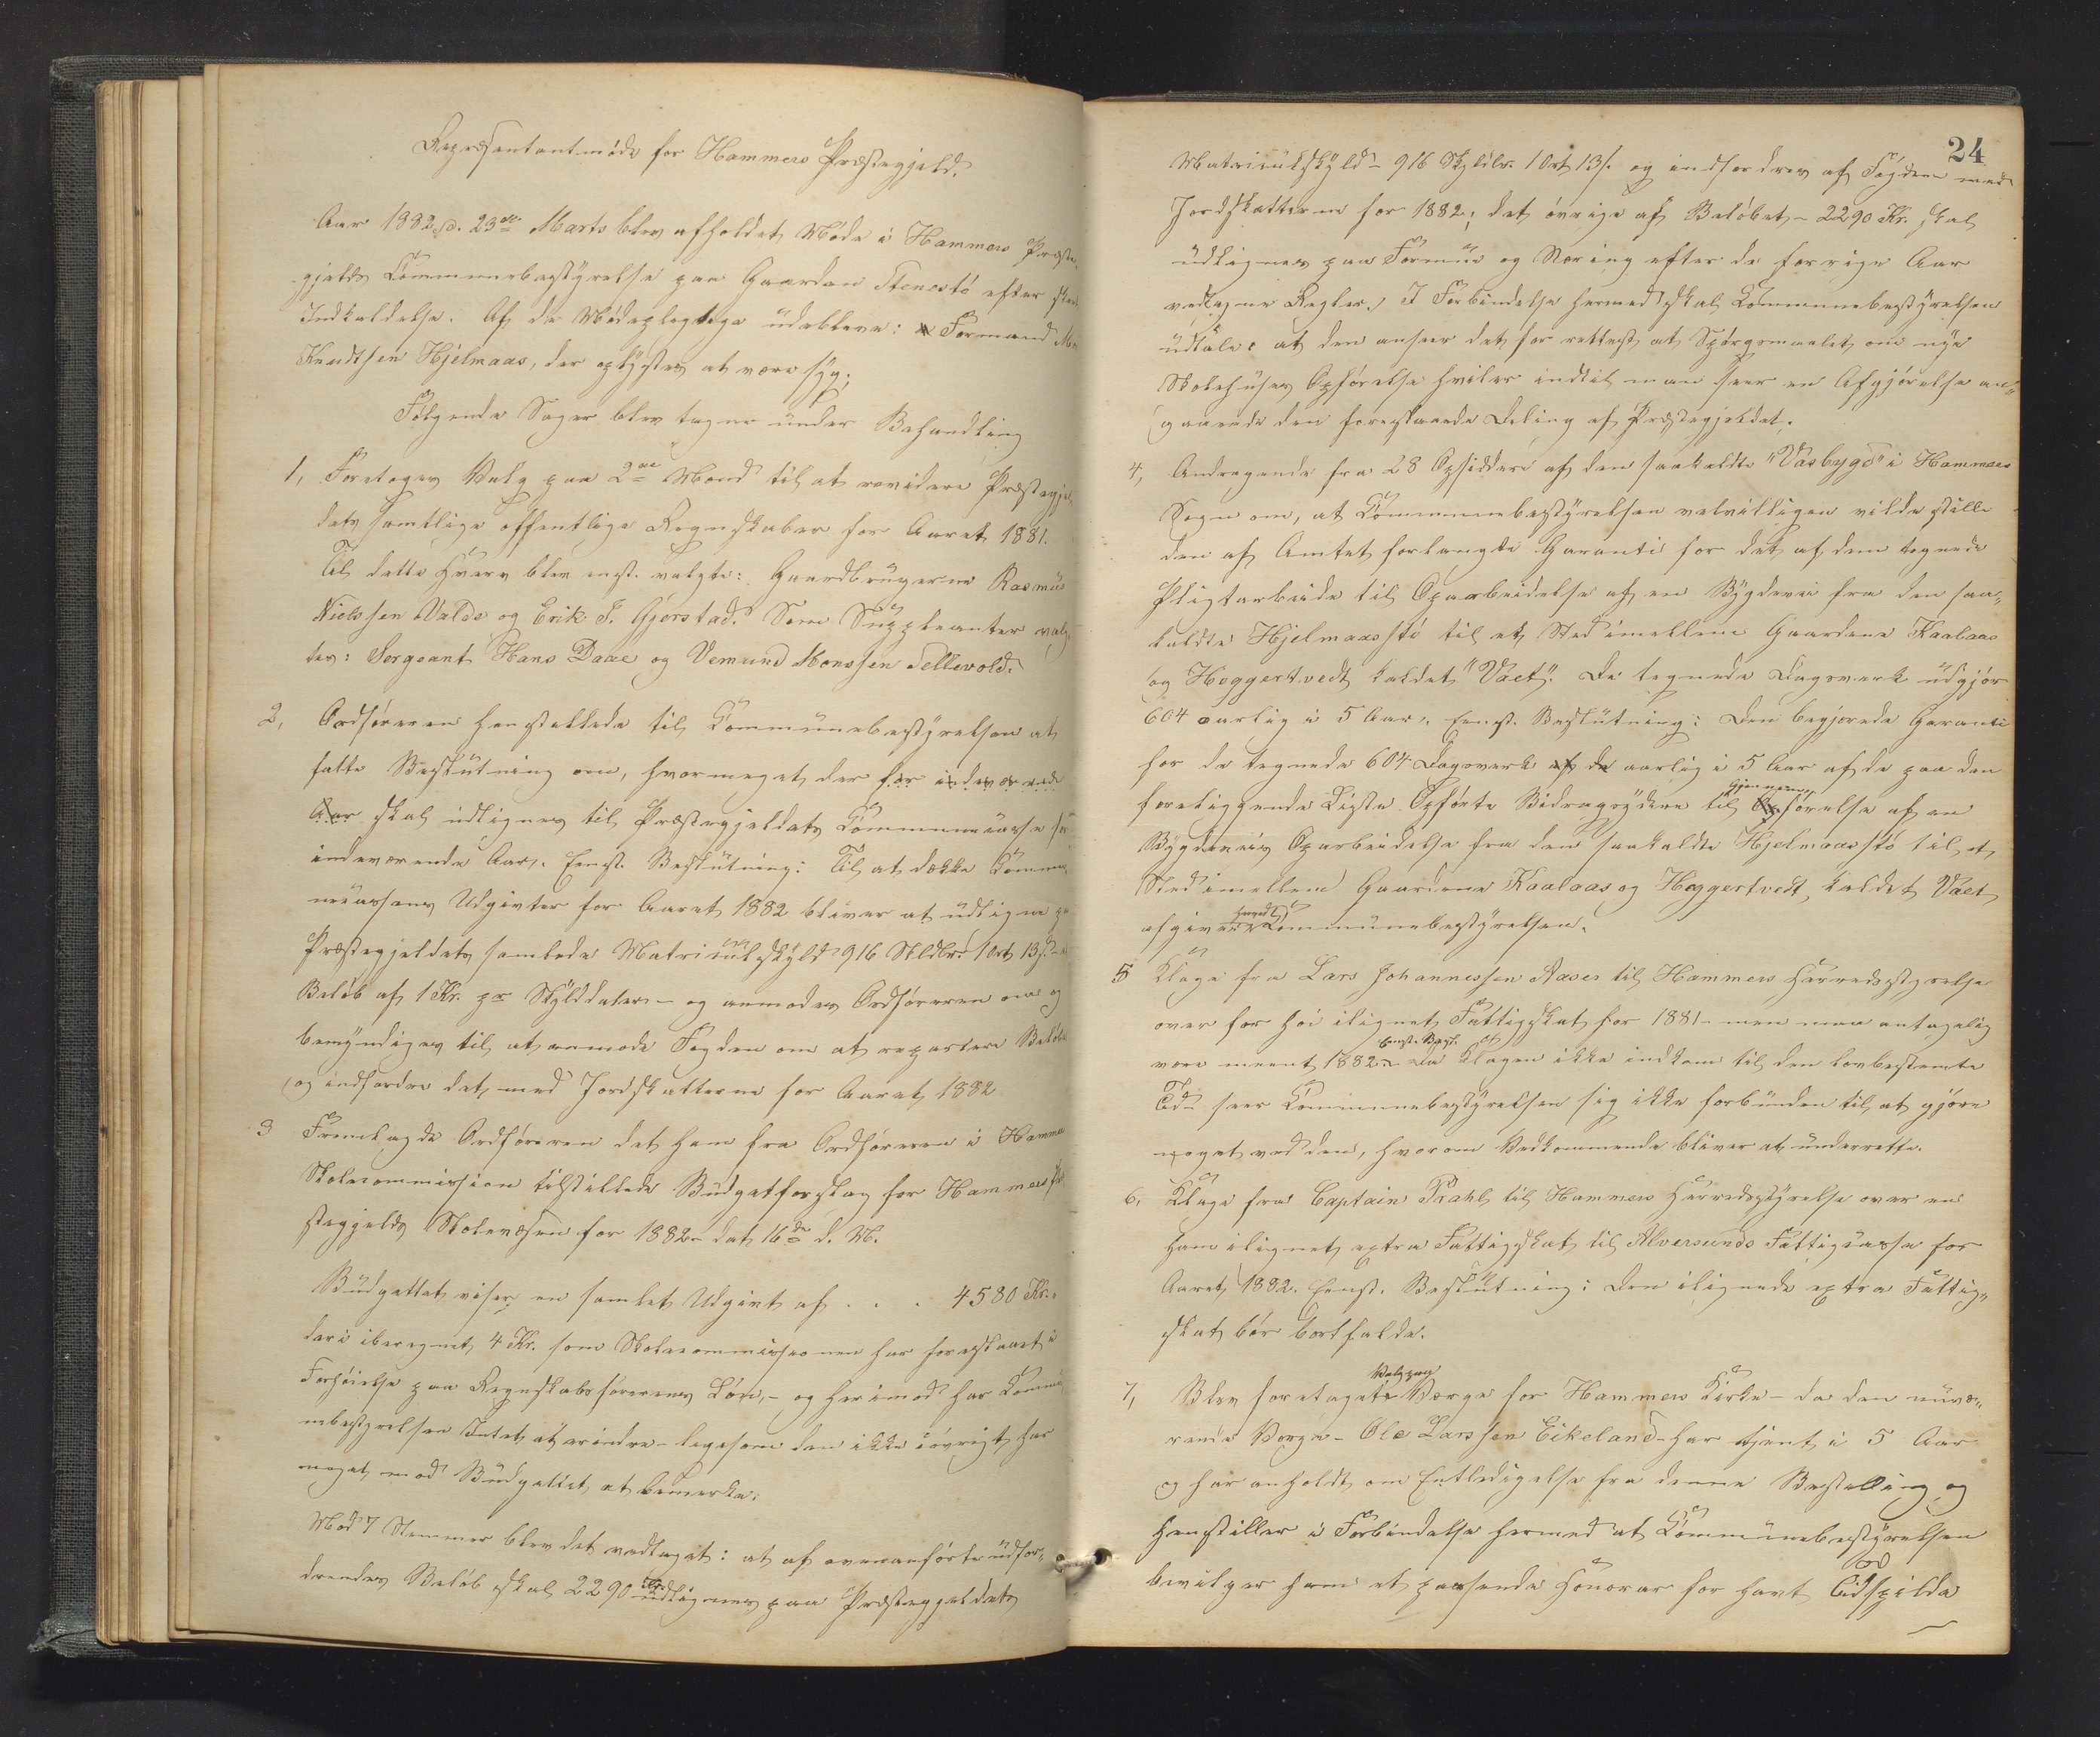 Repræsentantmøde for Hammers Præstegjeld.
Aar 1882 d. 23de Marts blev afholdet Møde i Hammers Præste-
gjelds Communebestyrelse paa Gaarden Stenestø efter skeet
Indkaldelse. Af de Mødepligtige udebleve: Formand
Knudtsen Hjelmaas, der oplystes at være syg;
Følgende Sager blev tagne under Behandling
1, Foretoges Valg paa 2de Mænd til at revidere Præstegjel-
dets samtlige offentlige Regnskaber for Aaret 1881.
Til dette Hverv blev enst. valgte: Gaardbrugerne Rasmus
Nielssen Valde og Erik J. Gjerstad. Som Suppleanter valg-
tes: Sergeant Hans Daae og Vemund Monssen Tellevold.
2, Ordføreren henstillede til Communebestyrelsen at
fatte Beslutning om, hvormeget der for indeværende
Aar skal udlignes til Præstegjeldets Communecasse for
indeværende Aar. Eenst. Beslutning: Til at dække Commu-
necassens Udgivter for Aaret 1882 bliver at udligne paa
Præstegjeldets samlede Matriculskyld 916 Skldlr. 1 Ort 13 s.
Beløb af 1 Kr. pr Skylddaler - og anmodes Ordføreren om og
bemyndiges til at anmode Fogden om at repartere Beløbet
og indfordre det med Jordskatterne for Aaret 1882
3 Fremlagde Ordføreren det ham fra Ordføreren i Hammers
Skolecommission tilstillede Budgetforslag for Hammers Præ-
stegjelds Skolevæsen for 1882 - dat 16de d. M.
Budgettet viser en samlet Udgivt af . . . 4580 Kr.
deri iberegnet 4 Kr. som Skolecommissionen har foreslaaet i
Forhøielse paa Regnskabsførerens Løn, - og herimod har Commu-
nebestyrelsen Intet at erindre - ligesom den ikke iøvrigt har
noget mod Budgettet at bemerke:
Mod 7 Stemmer blev det vedtaget: at af ovenanførte udfor-
drendes Beløb skal 2290 Kr. udlignes paa Præstegjeldets
24
Matriculskyld - 916 Skyldlr. 1 Ort 13 s. og indfordres af Fogden med
Jordskatterne for 1882; det øvrige af Beløbet - 2290 Kr. skal
udlignes paa Formue og Næring efter de forrige Aar
vedtagne Regler. I Forbindelse hermed skal Communebestyrelsen
udtale: at den anseer det for rettest at Spørgsmaalet om nye
Skolehuses Opførelse hviler indtil man seer en Afgjørelse an-
gaaende den foreslaaede Deling af Præstegjeldet.
4, Andragende fra 28 Opsiddere af den saakaldte "Vasbygd" i Hammers
Sogn om, at Communebestyrelsen velvilligen vilde stille
den af Amtet forlangte Garanti for det af dem tegnede
Pligtarbeide til Oparbeidelse af en Bygdevei fra den saa-
kaldte Hjelmaasstø til et Sted imellem Gaardene Kaalaas
og Heggertvedt kaldet "Váet". De tegnede Dagsverk udgjør
604 aarlig i 5 Aar. Eenst. Beslutning: Den begjærede Garanti
for de tegnede 604 Dagsverk af de aarlig i 5 Aar af de paa den
foreliggende Liste Opførte Bidragsydere til Gjennemførelse af en
Bygdeveis Oparbeidelse fra den saakaldte Hjelmaasstø til et
Sted imellem Gaardene Kaalaas og Heggertvedt, kaldet Váet
afgives herved Communebestyrelsen.
5 Klage fra Lars Johannessen Aases til Hammers Herredsstyrelse
over for høi ilignet Fattigskat for 1881 - men maa antagelig
være meent 1882. Eenst. Besl. at Da Klagen ikke indkom til den lovbestemte
Tid - seer Communebestyrelsen sig ikke forbunden til at gjøre
noget ved den, hvorom Vedkommende bliver at underrette.
6, Klage fra Captain Prahl til Hammers Herredsstyrelse over en
ham ilignet extra Fattigskat til Alversunds Fattigcasse for
Aaret 1882. Eenst. Beslutning: Den ilignede extra Fattig-
skat bør bortfalde.
7, Blev foretaget Valg paa Værge for Hammers Kirke - da den nuvæ-
rende Værge - Ole Larssen Eikeland - har tjent i 5 Aar
og har anholdt om Entledigelse fra denne Bestilling og
henstiller i Forbindelse hermed at Communebestyrelsen
bevilger ham et passende Honorar for havt Tidsspilde